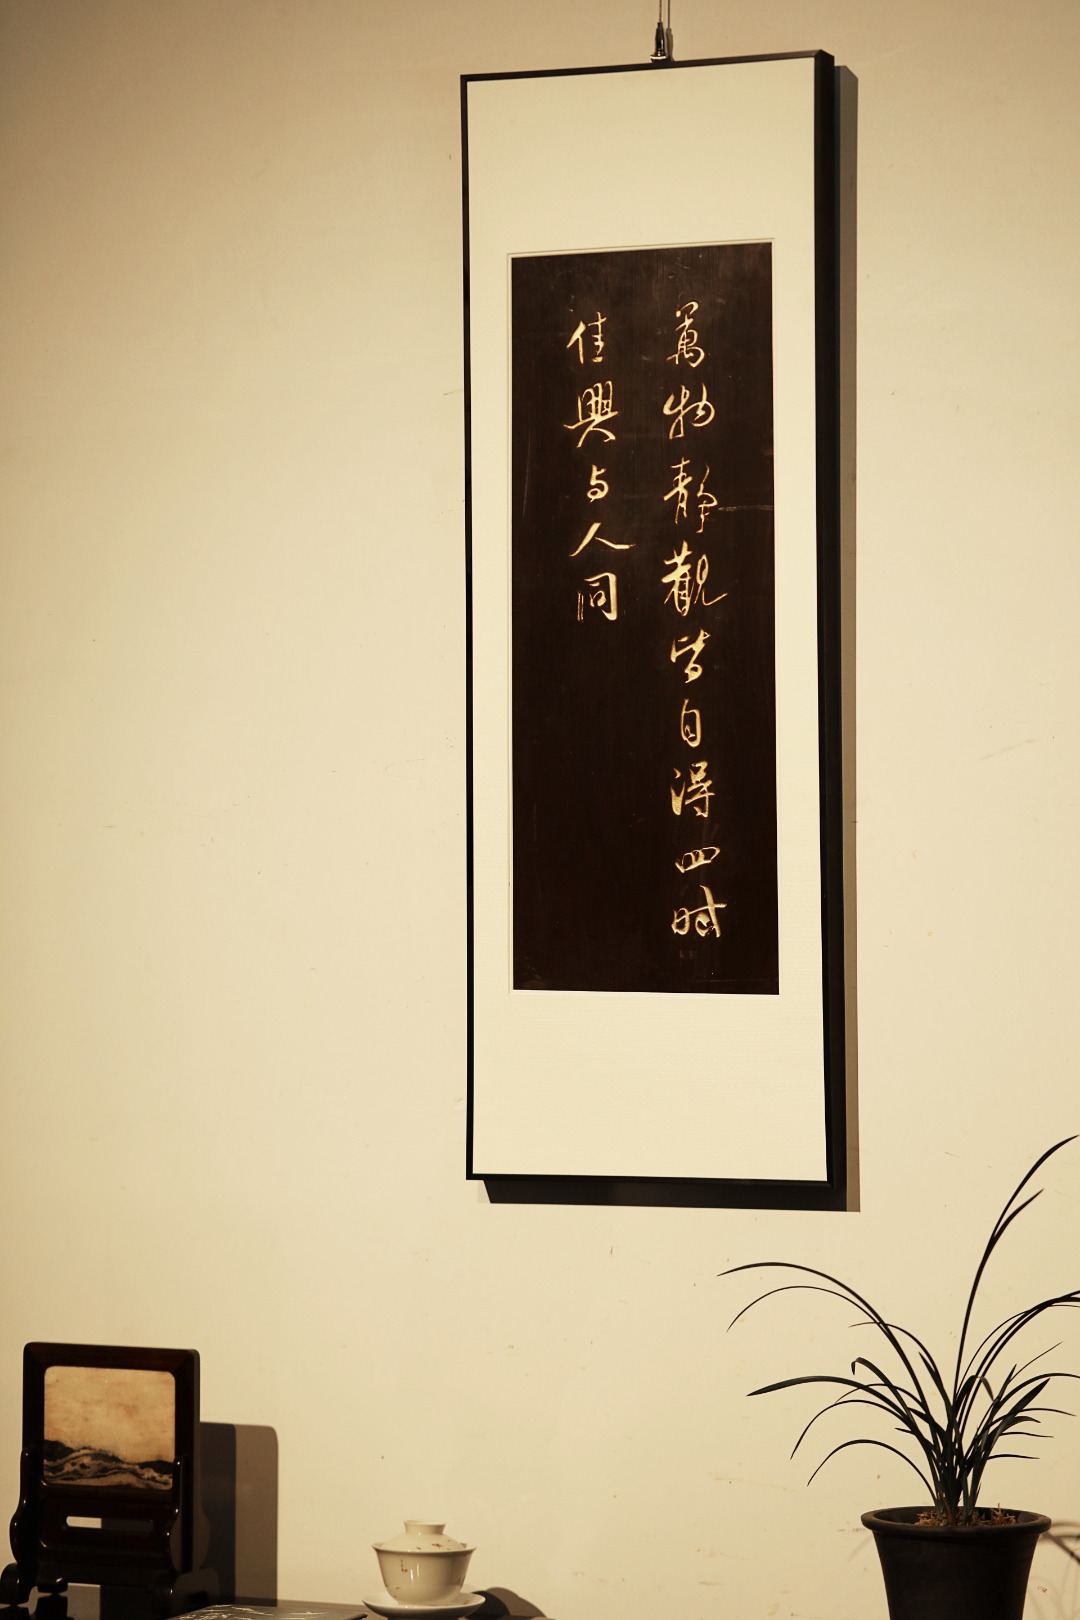 萬物靜觀皆自得四时
佳興与人同